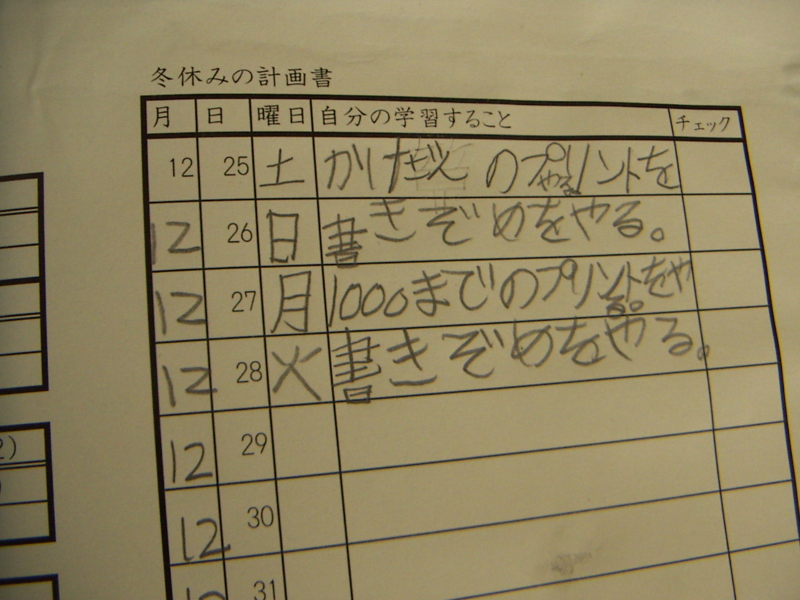 冬休みの計画書
月 日 曜日 自分の学習すること チェック
12 25 土 かけざん のプリントを
やる
12 26 日 書きぞめをやる。
12 27 月 1000までのプリントをや
る。
12 28 火 書きぞめをやる。
12 29
12 30
31
2)